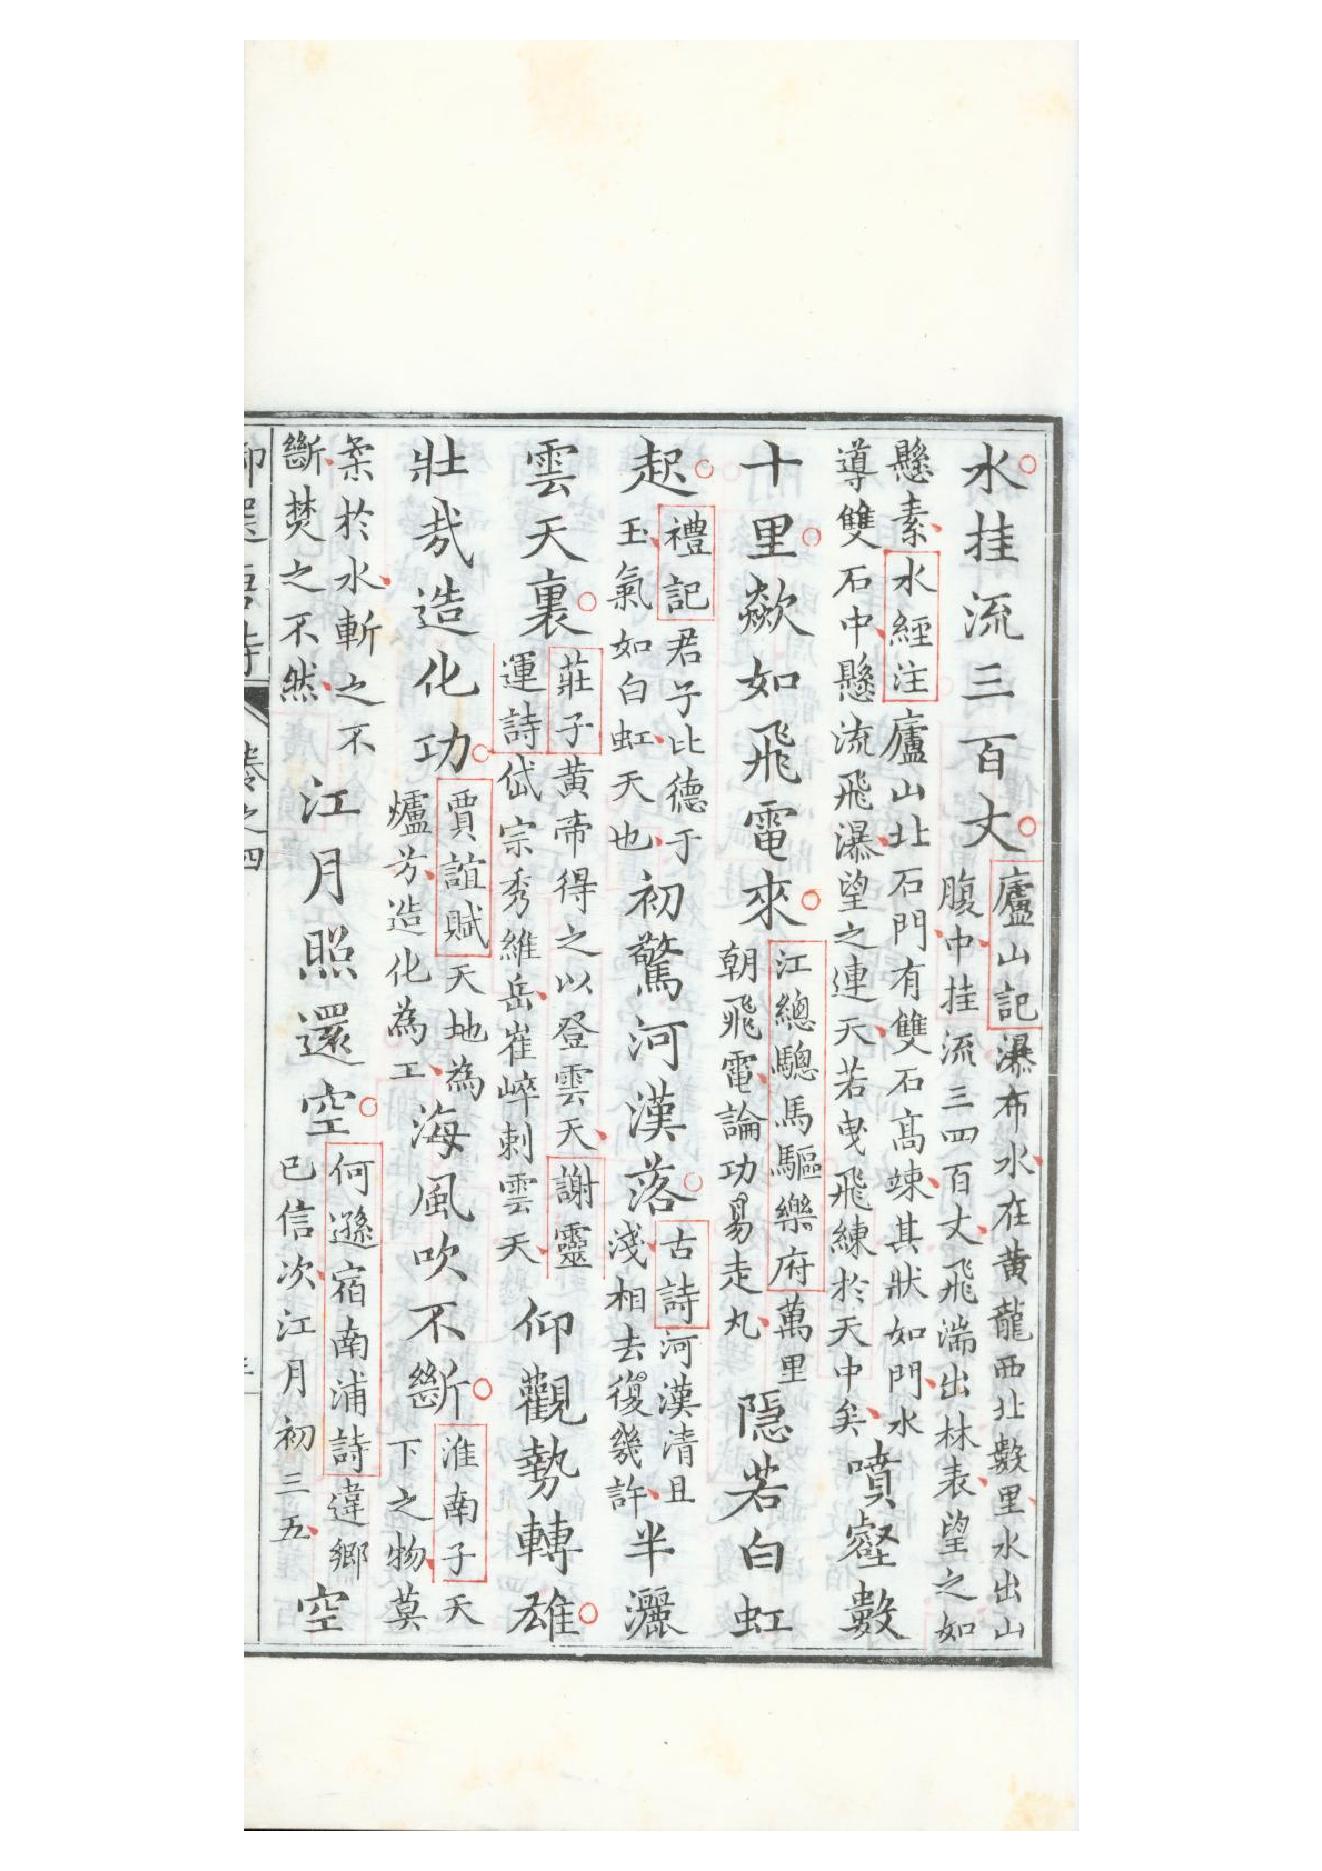 水挂流三百丈廬山記瀑布水在黄龍西北數里水出山
腹中挂流三四百丈飛湍出林表望之如
懸素水經注廬山北石門有雙石髙竦其狀如門水
導雙石中懸流飛瀑望之連天若曳飛練於天中矣噴壑數
十里歘如飛電來江總驄馬驅樂府萬里
朝飛電論功易走丸隱若白虹
起禮記君子比德于
玉氣如白虹天也初驚河漢落古詩河漢清且
淺相去復幾許半灑
雲天裏莊子黄帝得之以登雲天謝靈
運詩岱宗秀維岳崔崪刺雲天仰觀勢轉雄
壯哉造化功賈誼賦天地為
爐兮造化為工海風吹不斷淮南子天
下之物莫
柔於水斬之不
斷焚之不然江月照還空何遜宿南浦詩違鄉
已信次江月初三五空
御選唐詩 卷之四